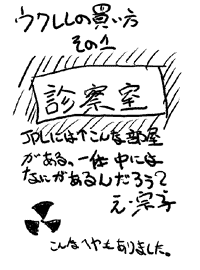 ウクレレの買い方
その1
診察室
JPLにはこんな部屋
がある、一体中には
なにがあるんだろう?
え・宗・
こんなヘヤもありました。